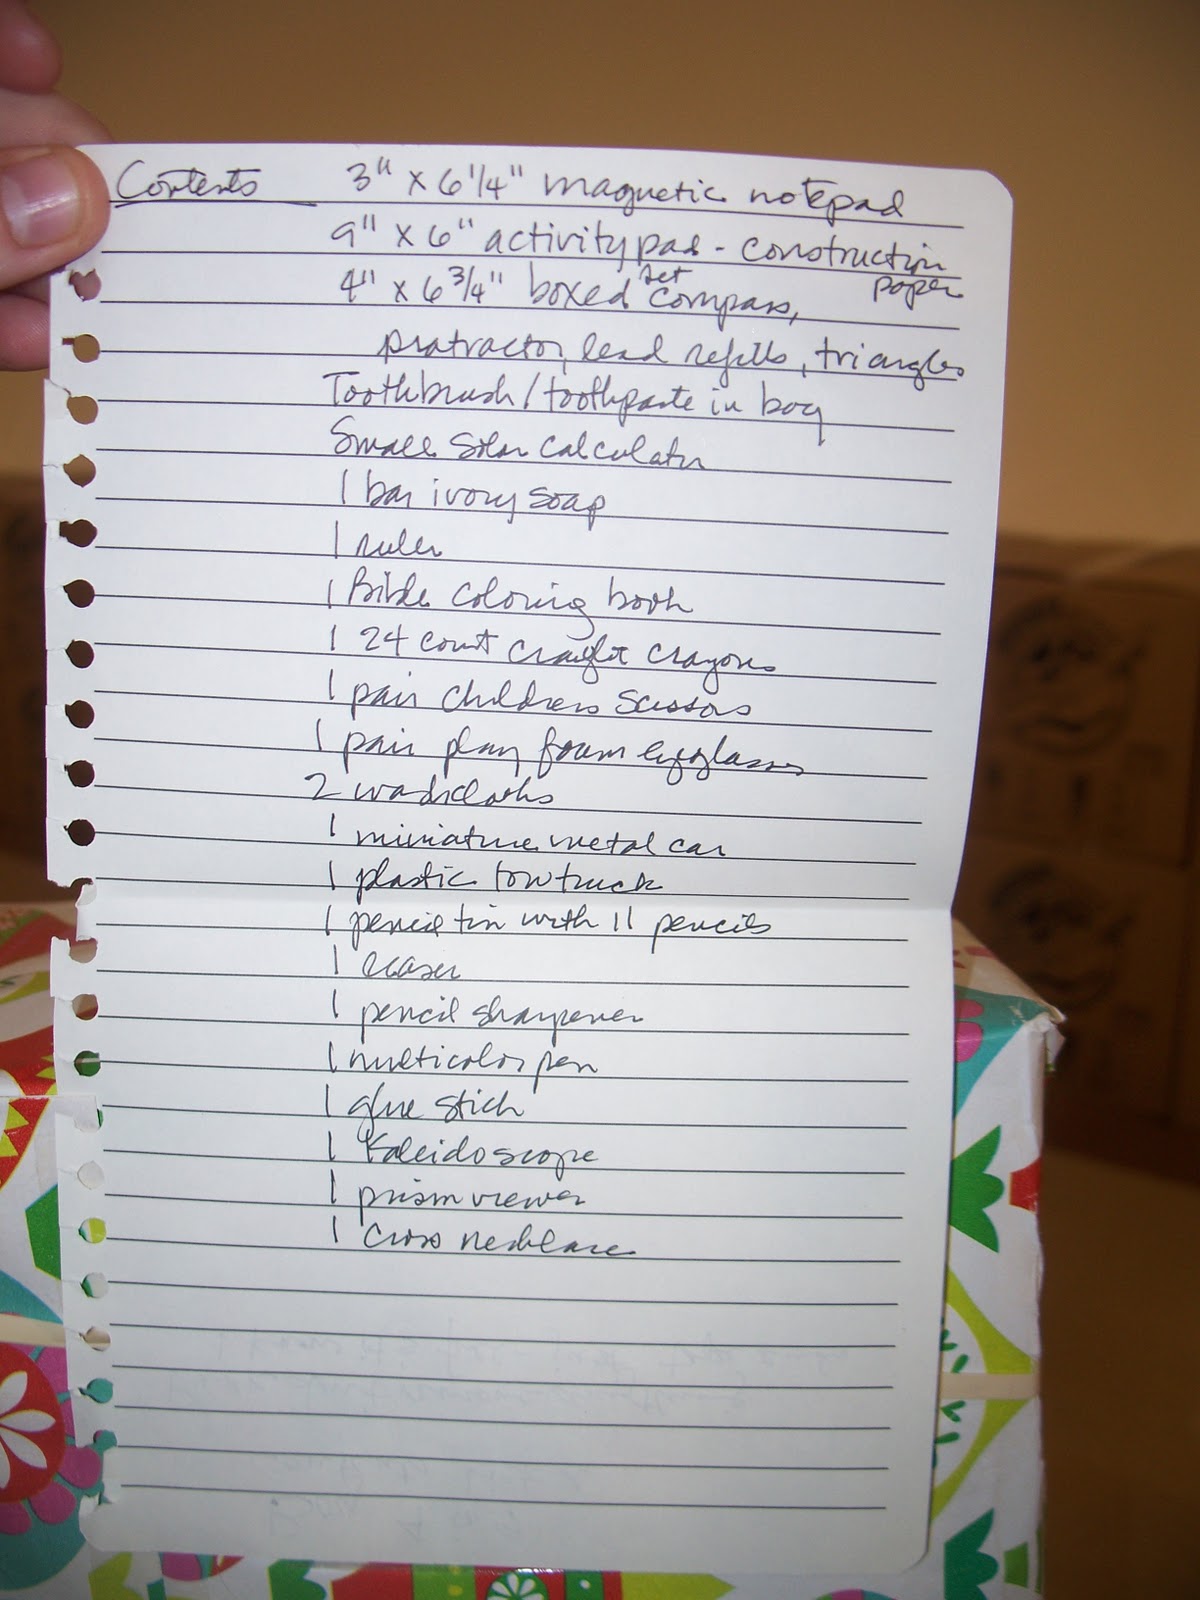 Contents 3" x 6 1/4" magnetic notepad
9" x 6" activity pad - construction paper
4" x 6 3/4" boxed set compass,
protractor, lead refills, triangles
Toothbrush / toothpaste in bag
Small Solar Calculator
1 bar ivory soap
1 ruler
1 Bible coloring book
1 24 count crayons
1 pair childrens scissors
1 pair play foam eyeglasses
2 washcloths
1 miniature metal car
1 plastic tow truck
1 pencil tin with 11 pencils
1 eraser
1 pencil sharpener
1 multicolor pen
1 glue stick
1 Kaleidoscope
1 prism viewer
1 Cross necklace